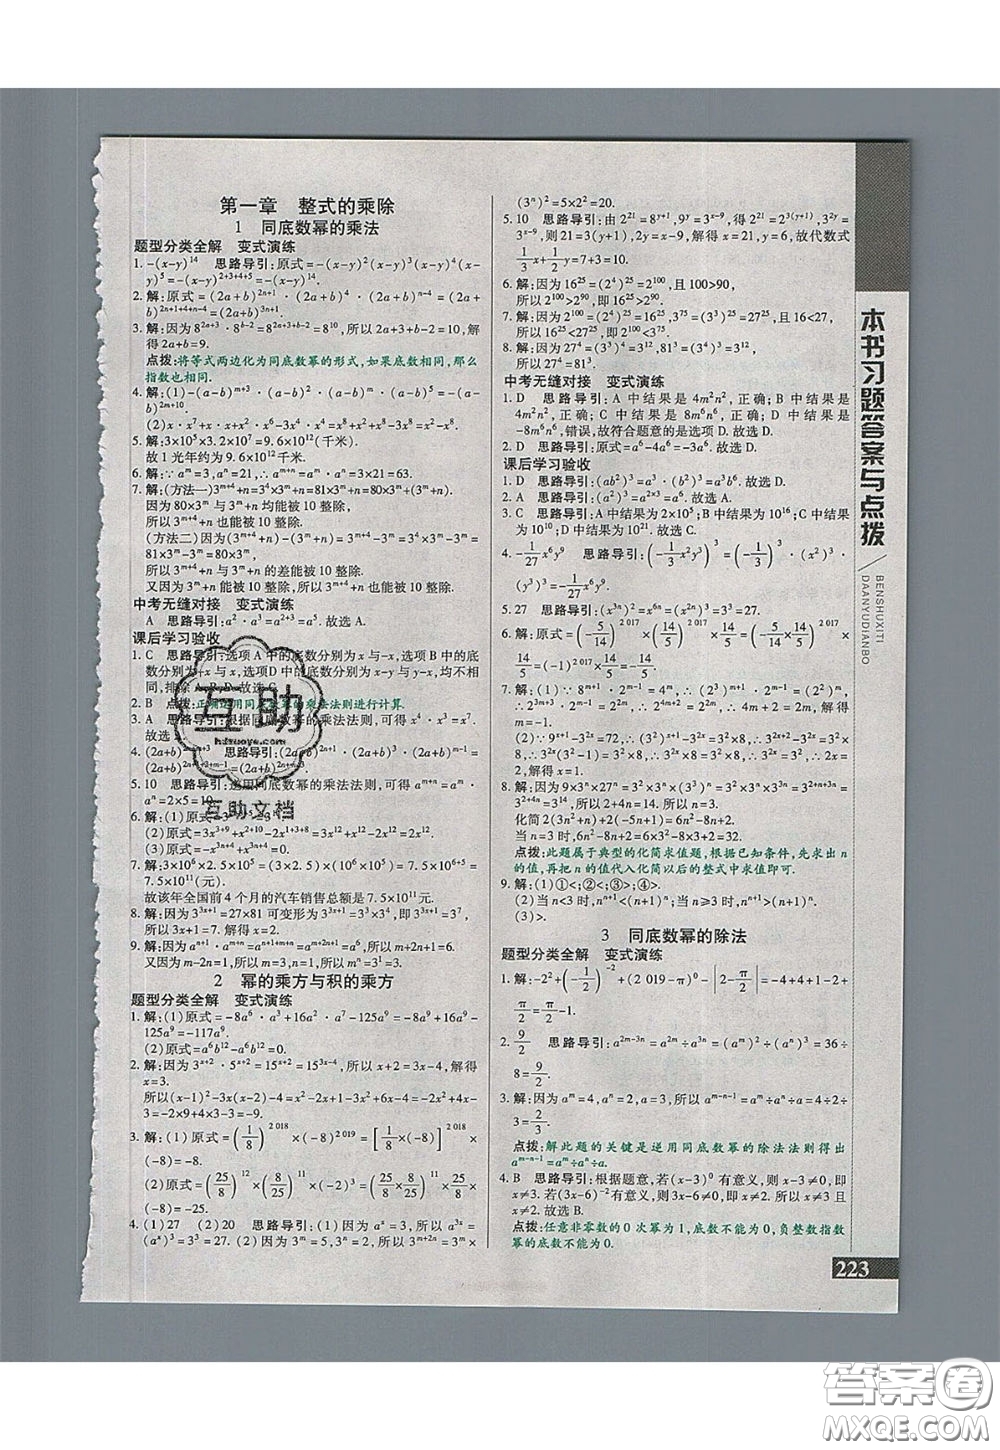 第一章　整式的乘除
1　同底数幂的乘法
题型分类全解　变式演练
1. -(x-y)¹⁴　思路导引:原式=-(x-y)²(x-y)³(x-y)⁴(x-
y)⁵=-(x-y)²⁺³⁺⁴⁺⁵=-(x-y)¹⁴.
2. 解:原式=(2a+b)²ⁿ⁺¹·(2a+b)⁴·(2a+b)ⁿ⁻⁴=(2a+
b)²ⁿ⁺¹⁺⁴⁺ⁿ⁻⁴=(2a+b)³ⁿ⁺¹.
3. 解:因为8²ᵃ⁺³·8ᵇ⁻²=8²ᵃ⁺³⁺ᵇ⁻²=8¹⁰,所以2a+3+b-2=10,解得
2a+b=9.
点拨:将等式两边化为同底数幂的形式,如果底数相同,那么
指数也相同.
4. 解:(1)-(a-b)ᵐ⁺³·(a-b)²·(a-b)ᵐ·(a-b)⁵=-(a-
b)²ᵐ⁺¹⁰.
5. 解:3×10⁵×3.2×10⁷=9.6×10¹²(千米).
故1光年约为9.6×10¹²千米.
6. 解:∵aᵐ=3,aⁿ=21,∴aᵐ⁺ⁿ=aᵐ·aⁿ=3×21=63.
7. 解:(方法一)3ᵐ⁺⁴+n=3⁴×3ᵐ+n=81×3ᵐ+n=80×3ᵐ+3ᵐ+n,
因为80×3ᵐ与3ᵐ+n均能被10整除,
所以3ᵐ⁺⁴+n能被10整除.
(方法二)因为(3ᵐ⁺⁴+n)-(3ᵐ+n)=3ᵐ⁺⁴-3ᵐ=3⁴×3ᵐ-3ᵐ=
81×3ᵐ-3ᵐ=80×3ᵐ,
所以3ᵐ⁺⁴+n与3ᵐ+n的差能被10整除.
又因为3ᵐ+n能被10整除,所以3ᵐ⁺⁴+n能被10整除.
中考无缝对接　变式演练
A　思路导引:a²·a³=a²⁺³=a⁵.故选A.
课后学习验收
1. C　思路导引:选项A中的底数分别为x与-x,选项B中的底
数分别为+x与x,选项D中的底数分别为x-y与y-x,均不相
同,排除A,B,D.故选C.
2. B　点拨:正确运用同底数幂的乘法法则进行计算.
3. A　思路导引:根据同底数幂的乘法法则,可得x⁴·x³=x⁷.
故选A.
4. (2a+b)²ᵐ⁺ⁿ⁺²　思路导引:(2a+b)³(2a+b)ⁿ(2a+b)²ᵐ⁻¹=
5. 10　思路导引:逆用同底数幂的乘法法则,可得aᵐ⁺ⁿ=aᵐ·
aⁿ=2×5=10.
(2)原式=x³⁺⁹+x²⁺¹⁰-2x¹⁺³⁺⁸=x¹²+x¹²-2x¹²=0.
(3)原式=-x³ⁿ⁺⁴+x³ⁿ⁺⁴=0.
7. 解:3×10⁶×2.5×10⁵=(3×2.5)×(10⁶×10⁵)=7.5×10⁶⁺⁵=
7.5×10¹¹(元).
故该年全国前4个月的汽车销售总额是7.5×10¹¹元.
8. 解:因为3³ˣ⁺¹=27×81可变形为3³ˣ⁺¹=3³×3⁴,即3³ˣ⁺¹=3⁷,
所以3x+1=7.解得x=2.
9. 解:因为aⁿ⁺¹·aᵐ⁺ⁿ=aⁿ⁺¹⁺ᵐ⁺ⁿ=aᵐ⁺²ⁿ⁺¹=a⁶,所以m+2n+1=6.
又因为m-2n=1,所以m=3,n=1,所以mⁿ=3.
2　幂的乘方与积的乘方
题型分类全解　变式演练
1. 解:(1)原式=-8a⁶·a³+16a²·a⁷-125a⁹=-8a⁹+16a⁹-
125a⁹=-117a⁹.
(2)原式=a⁶b¹²-a⁶b¹²=0.
2. 解:因为3ˣ⁺²·5ˣ⁺²=15ˣ⁺²=15³ˣ⁻⁴,所以x+2=3x-4,解得
x=3.
所以(x-1)²-3x(x-2)-4=x²-2x+1-3x²+6x-4=-2x²+4x-3
=-2×9+4×3-3=-9.
3. 解:(1)原式=(1/8)²⁰¹⁸×(-8)²⁰¹⁹=[1/8×(-8)]²⁰¹⁸
×(-8)=-8.
(2)原式=(25/8)¹¹×(8/25)¹¹×(-2)³=(25/8×8/25)¹¹×25/8
×(-8)=-25.
4. (1)27　(2)20　思路导引:(1)因为aˣ=3,所以a³ˣ=
(aˣ)³=3³=27.(2)因为3ᵐ=5,3ⁿ=2,所以3ᵐ⁺²ⁿ=3ᵐ×
(3ⁿ)²=5×2²=20.
5. 10　思路导引:由2²¹=8ʸ⁺¹,9ʸ=3ˣ⁻⁹,得2²¹=2³⁽ʸ⁺¹⁾,3²ʸ=
3ˣ⁻⁹,则21=3(y+1),2y=x-9,解得x=21,y=6,故代数式
1/3x+1/2y=7+3=10.
6. 解:因为16²⁵=(2⁴)²⁵=2¹⁰⁰,且100>90,
所以2¹⁰⁰>2⁹⁰,即16²⁵>2⁹⁰.
8. 解:因为27⁴=(3³)⁴=3¹²,81³=(3⁴)³=3¹²,
所以27⁴=81³.
中考无缝对接　变式演练
1. D　思路导引:A中结果是4m²n²,正确;B中结果是
4m²n²,正确;C中结果是8m⁶n⁶,正确;D中结果是
-8m⁶n⁶,错误,故符合题意的是选项D.故选D.
2. D　思路导引:原式=a⁶-4a⁶=-3a⁶.故选D.
课后学习验收
1. D　思路导引:(ab²)³=a³·(b²)³=a³b⁶.故选D.
2. A　思路导引:(a²)³=a²ˣ³=a⁶.故选A.
3. C　思路导引:A中结果为2×10⁵;B中结果为10¹⁶;C中结
果为10¹⁰;D中结果为10²¹.故选C.
4. -1/27x⁶y⁹　思路导引:(-1/3x²y³)³=(-1/3)³·(x²)³·
(y³)³=-1/27x⁶y⁹.
5. 27　思路导引:(x³ⁿ)²=(x²ⁿ)³=3³=27.
6. 解:原式=(-5/14)²⁰¹⁷×(14/5)²⁰¹⁷×14/5=(-5/14×14/5)²⁰¹⁷×
14/5=(-1)×14/5=-14/5.
x=2.解得x=1.
8. 解:因为9×3ⁿ×27ⁿ=3²×3ⁿ×(3³)ⁿ=3²×3ⁿ×3³ⁿ=3²⁺ⁿ⁺³ⁿ=
3²⁺⁴ⁿ=3¹⁸,所以2+4n=18,所以4n=16,解得n=4.
当n=4时,6n²-8n+2=6×4²-8×4+2=
点拨:此题属于典型的化简求值题,根据已知条件,先求出n
的值,再把n的值代入化简以后的整式中求值即可.
9. 解:(1)①<;②<;③>;④>.
(2)当n<3时,nⁿ⁺¹<(n+1)ⁿ,当n⩾3时,nⁿ⁺¹>(n+1)ⁿ.
(3)>.
3　同底数幂的除法
题型分类全解　变式演练
1. 解:-2²+(-1/2)⁻²+(2 019-π)⁰-|2-π/2|=-4+4+1-2+
π/2=π/2-1.
2. 9/2　思路导引:a²ᵐ⁻³ⁿ=a²ᵐ÷a³ⁿ=(aᵐ)²÷(aⁿ)³=36÷
8=9/2.
3. 解:因为aᵐ=4,aⁿ=2,a=3,所以aᵐ⁻ⁿ⁻¹=aᵐ÷aⁿ÷a=4÷2÷
3=2/3.
点拨:解此题的关键是逆用同底数幂的除法法则得出
aᵐ⁻ⁿ⁻¹=aᵐ÷aⁿ÷a.
4. B　思路导引:根据题意,若(x-3)⁰有意义,则x-3≠0,即
x≠3.若(3x-6)⁻²有意义,则3x-6≠0,即x≠2,所以x≠3且
x≠2.故选B.
点拨:任意非零数的0次幂为1,底数不能为0,负整数指数
幂的底数不能为0.
本书习题答案与点拨
BENSHUXITI
DAANYUDIANBO
223
互助
互助文档
答案卷
MXQE.COM